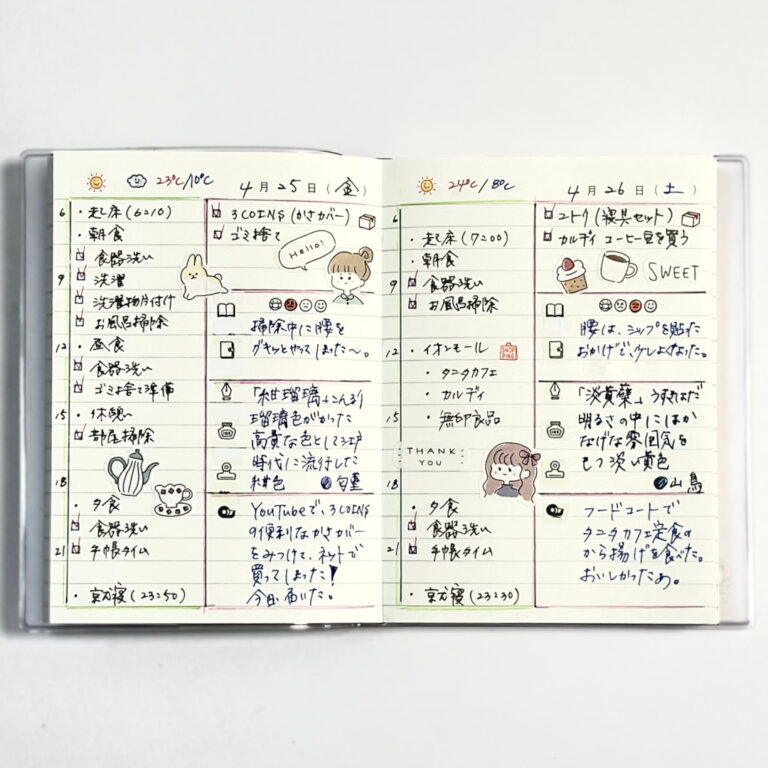 23℃/10℃
4月25日(金)
6
・起床(6:10)
・朝食
食器洗い
9
洗濯
洗濯物片付け
お風呂掃除
12
・昼食
食器洗い
ゴミ捨て準備
15
・休憩い
部屋掃除
18
・夕食
食器洗い
21
手帳タイム
・就寝(23:50)
3COINS(かさカバー)
ゴミ捨て
Hello!
掃除中に腰を
グキッとやってしまった〜。
「紺瑠璃」こんるり
瑠璃色がかった
高貴な色として江戸
時代に流行した
紺色
YouTubeで、3COINS
の便利なかさカバー
をみつけて、ネットで
買ってしまった!
今日届いた。
24℃/8℃
4月26日(土)
6
・起床(7:00)
・朝食
9
食器洗い
お風呂掃除
12
・イオンモール
SHOPPING
・タニタカフェ
・カルディ
15
・無印良品
THANK
YOU
18
・夕食
食器洗い
21
手帳タイム
・就寝(23:30)
ニトリ(寝具セット)
カルディ コーヒー豆を買う
SWEET
腰は、シップを貼った
おかげで、少しよくなった。
「淡黄蘗」うすきはだ
明るさの中にはか
なげな雰囲気を
もつ淡い黄色
山鳥
フードコートで
タニタカフェ定食の
から揚げを食べた。
おいしかったぁ。